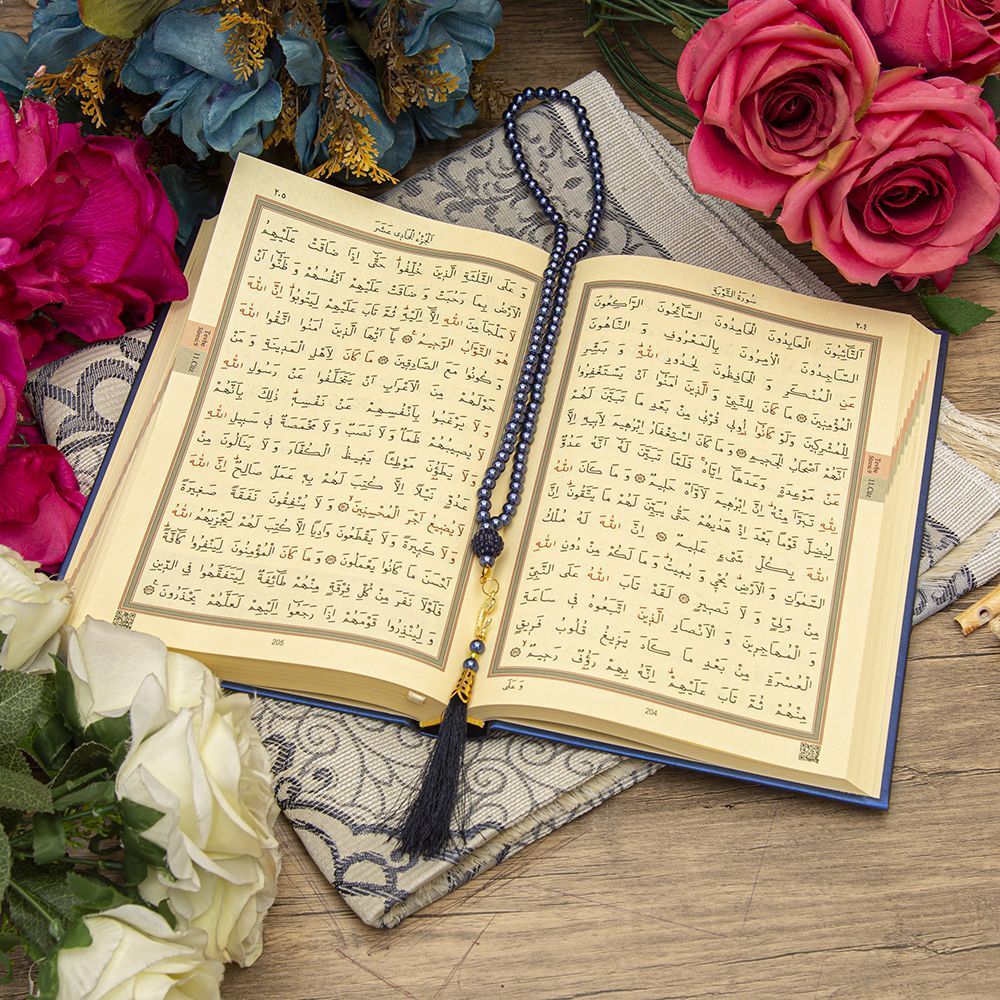 ٢٠٤
سُورَةُ التَّوْبَةِ
اَلتَّٓائِبُونَ الْعَابِدُونَ الْحَامِدُونَ السَّٓائِحُونَ الرَّاكِعُونَ
السَّاجِدُونَ الْاٰمِرُونَ بِالْمَعْرُوفِ وَ النَّاهُونَ
عَنِ الْمُنْكَرِ وَ الْحَافِظُونَ لِحُدُودِ اللّٰهِ وَ بَشِّرِ
الْمُؤْمِنٖينَ ۝ مَا كَانَ لِلنَّبِيِّ وَ الَّذٖينَ اٰمَنُٓوا اَنْ يَسْتَغْفِرُوا
لِلْمُشْرِكٖينَ وَلَوْ كَانُٓوا اُولٖي قُرْبٰى مِنْ بَعْدِ مَا تَبَيَّنَ لَهُمْ
اَنَّهُمْ اَصْحَابُ الْجَحٖيمِ ۝ وَ مَا كَانَ اسْتِغْفَارُ اِبْرٰهٖيمَ لِاَبٖيهِ اِلَّا
عَنْ مَوْعِدَةٍ وَعَدَهَٓا اِيَّاهُۚ فَلَمَّا تَبَيَّنَ لَهُٓ اَنَّهُ عَدُوٌّ
لِلّٰهِ تَبَرَّاَ مِنْهُۜ اِنَّ اِبْرٰهٖيمَ لَاَوَّاهٌ حَلٖيمٌ ۝ وَ مَا كَانَ اللّٰهُ
لِيُضِلَّ قَوْمًا بَعْدَ اِذْ هَدٰيهُمْ حَتّٰى يُبَيِّنَ لَهُمْ مَا يَتَّقُونَۜ اِنَّ
اللّٰهَ بِكُلِّ شَيْءٍ عَلٖيمٌ ۝ اِنَّ اللّٰهَ لَهُ مُلْكُ
السَّمٰوَاتِ وَ الْاَرْضِۜ يُحْيٖ وَ يُمٖيتُۜ وَ مَا لَكُمْ مِنْ دُونِ اللّٰهِ
مِنْ وَلِيٍّ وَ لَا نَصٖيرٍ ۝ لَقَدْ تَابَ اللّٰهُ عَلَى النَّبِيِّ
وَ الْمُهَاجِرٖينَ وَ الْاَنْصَارِ الَّذٖينَ اتَّبَعُوهُ فٖي سَاعَةِ
الْعُسْرَةِ مِنْ بَعْدِ مَا كَادَ يَزٖيغُ قُلُوبُ فَرٖيقٍ
مِنْهُمْ ثُمَّ تَابَ عَلَيْهِمْۜ اِنَّهُ بِهِمْ رَؤُفٌ رَحٖيمٌ ۝
وَ عَلَى
204
Tevbe
Sûresi 9
11.Cüz
٢٠٥
اَلْجُزْءُ الْحَادٖي عَشَرَ
وَ عَلَى الثَّلٰثَةِ الَّذٖينَ خُلِّفُواۜ حَتّٰٓى اِذَا ضَاقَتْ عَلَيْهِمُ
الْاَرْضُ بِمَا رَحُبَتْ وَ ضَاقَتْ عَلَيْهِمْ اَنْفُسُهُمْ وَ ظَنُّٓوا اَنْ
لَا مَلْجَاَ مِنَ اللّٰهِ اِلَّٓا اِلَيْهِۜ ثُمَّ تَابَ عَلَيْهِمْ لِيَتُوبُواۜ اِنَّ اللّٰهَ
هُوَ التَّوَّابُ الرَّحٖيمُ ۝ يَٓا اَيُّهَا الَّذٖينَ اٰمَنُوا اتَّقُوا اللّٰهَ
وَ كُونُوا مَعَ الصَّادِقٖينَ ۝ مَا كَانَ لِاَهْلِ الْمَدٖينَةِ وَ مَنْ
حَوْلَهُمْ مِنَ الْاَعْرَابِ اَنْ يَتَخَلَّفُوا عَنْ رَسُولِ اللّٰهِ
وَ لَا يَرْغَبُوا بِاَنْفُسِهِمْ عَنْ نَفْسِهٖۜ ذٰلِكَ بِاَنَّهُمْ
لَا يُصٖيبُهُمْ ظَمَاٌ وَ لَا نَصَبٌ وَ لَا مَخْمَصَةٌ فٖي سَبٖيلِ اللّٰهِ
وَ لَا يَطَؤُنَ مَوْطِئًا يَغٖيظُ الْكُفَّارَ وَ لَا يَنَالُونَ مِنْ
عَدُوٍّ نَيْلًا اِلَّا كُتِبَ لَهُمْ بِهٖ عَمَلٌ صَالِحٌۜ اِنَّ اللّٰهَ
لَا يُضٖيعُ اَجْرَ الْمُحْسِنٖينَ ۝ وَ لَا يُنْفِقُونَ نَفَقَةً صَغٖيرَةً
وَ لَا كَبٖيرَةً وَ لَا يَقْطَعُونَ وَادِيًا اِلَّا كُتِبَ لَهُمْ لِيَجْزِيَهُمُ اللّٰهُ
اَحْسَنَ مَا كَانُوا يَعْمَلُونَ ۝ وَ مَا كَانَ الْمُؤْمِنُونَ لِيَنْفِرُوا كَٓافَّةًۜ
فَلَوْلَا نَفَرَ مِنْ كُلِّ فِرْقَةٍ مِنْهُمْ طَٓائِفَةٌ لِيَتَفَقَّهُوا فِي الدّٖينِ
وَ لِيُنْذِرُوا قَوْمَهُمْ اِذَا رَجَعُٓوا اِلَيْهِمْ لَعَلَّهُمْ يَحْذَرُونَ ۝
205
Tevbe
Sûresi 9
11.Cüz